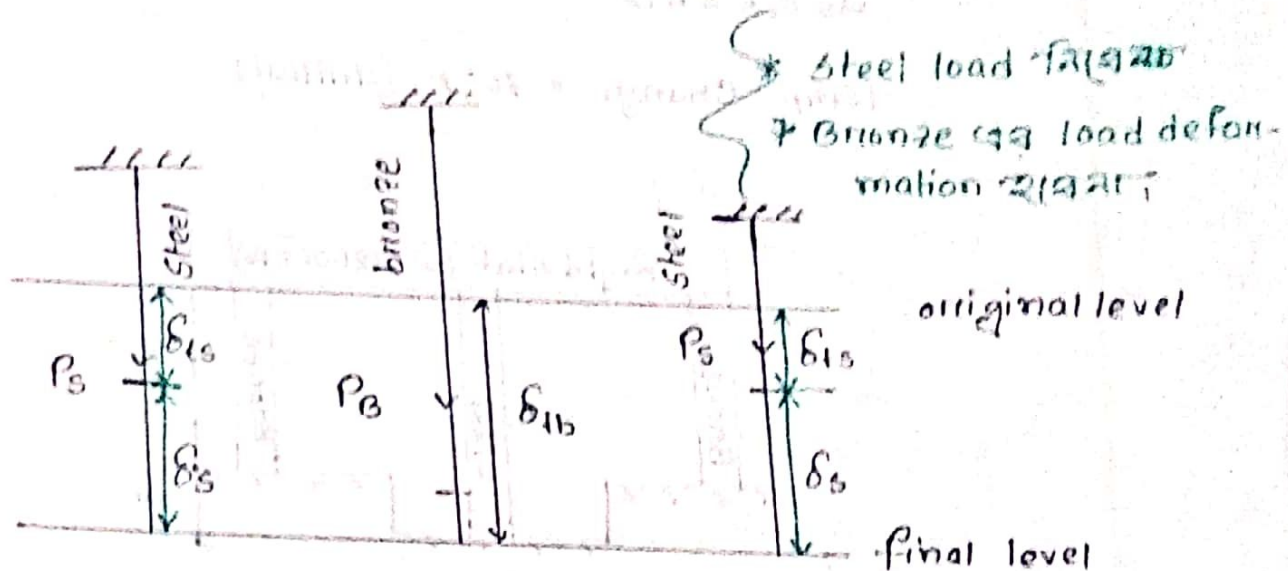 * Steel load নিবে সব
* Bronze এর load defor-
mation হবে না।
Steel
bronze
Steel
original level
δts
Ps
PB
δtb
Ps
δts
δs
δs
final level